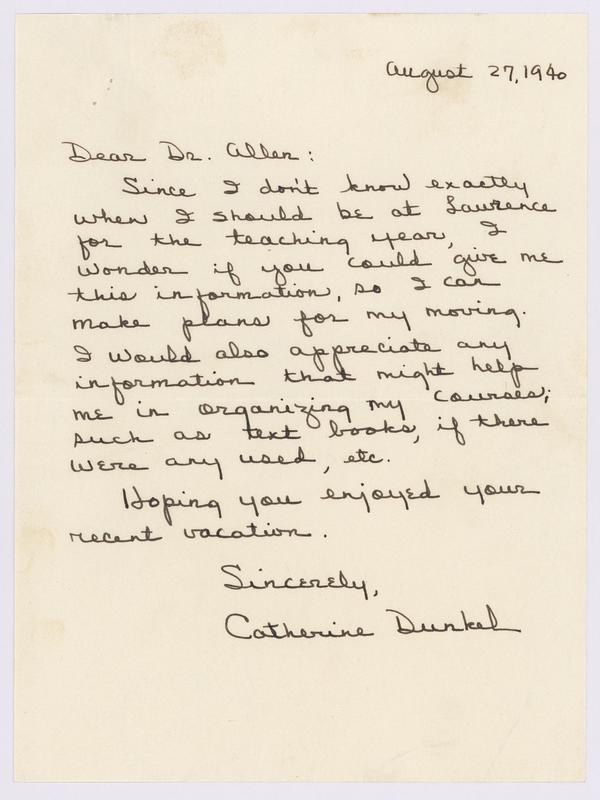 August 27, 1940
Dear Dr. Allen:
Since I don't know exactly
when I should be at Lawrence
for the teaching year, I
wonder if you could give me
this information, so I can
make plans for my moving.
I would also appreciate any
information that might help
me in organizing my courses;
such as text books, if there
were any used, etc.
Hoping you enjoyed your
recent vacation.
Sincerely,
Catherine Dunkel